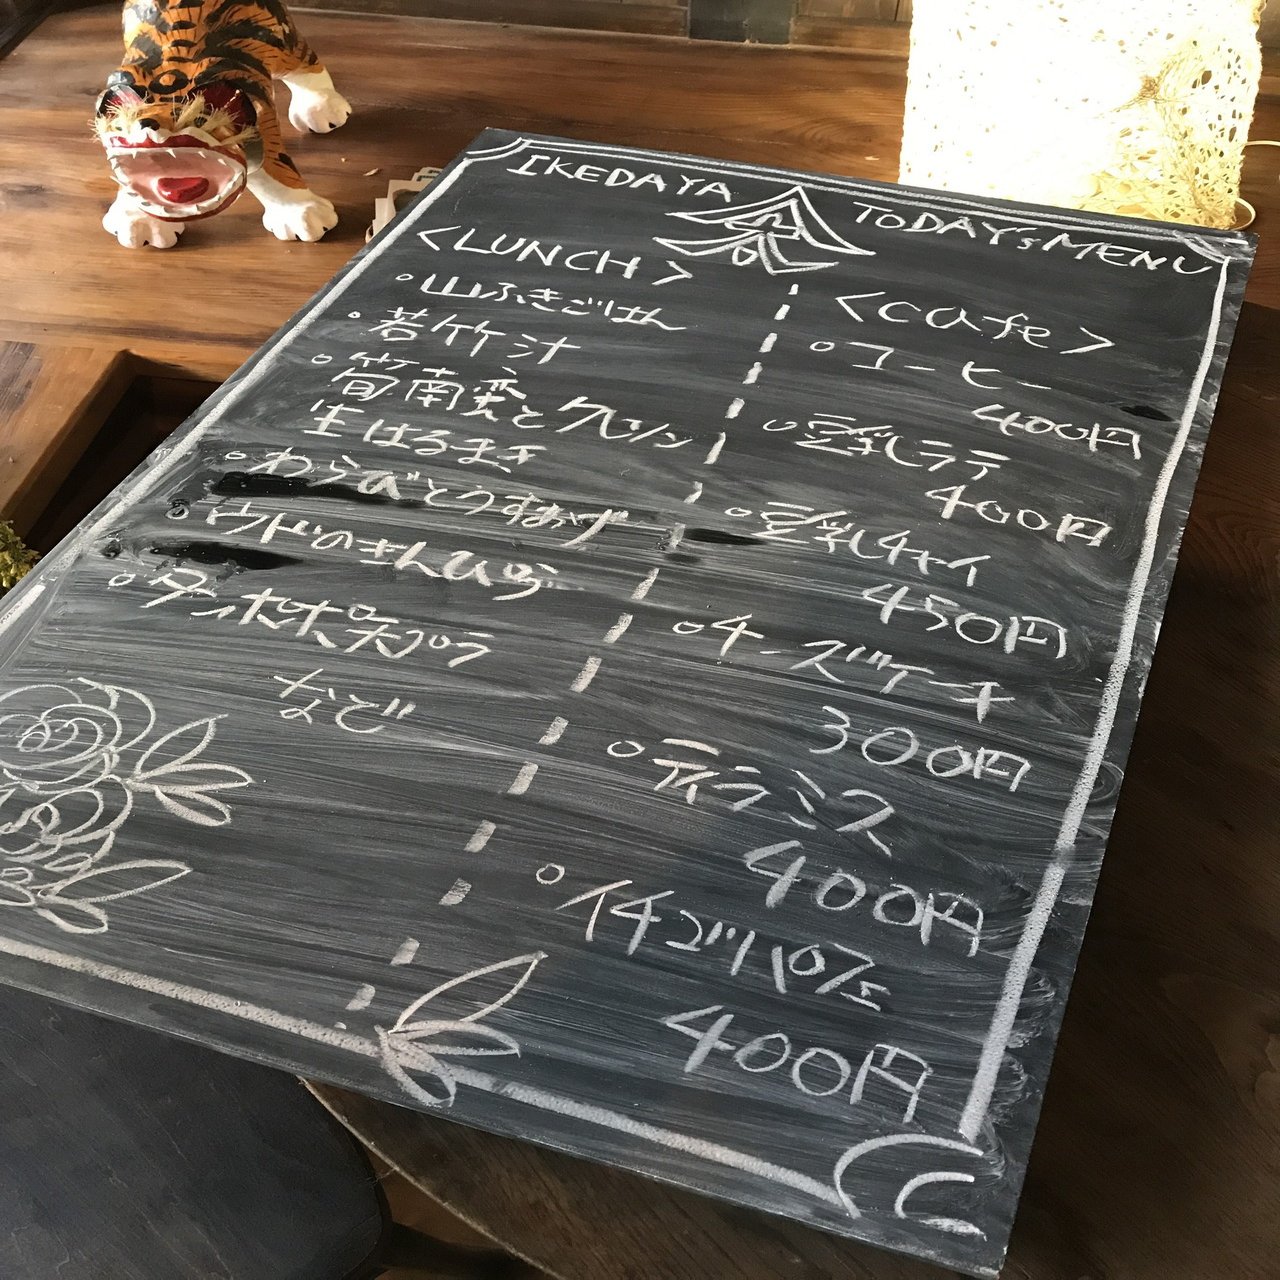 IKEDAYA TODAY'S MENU
<LUNCH>
○山ふきごはん
○若竹汁
○筍南蛮とクレソン
生はるまき
○わらびとうすあげ
○ウドのきんぴら
○タンポポ天プラ
など
<cafe>
○コーヒー
400円
○豆乳ラテ
400円
○豆乳チャイ
450円
○チーズケーキ
300円
○ティラミス
400円
○イチゴパフェ
400円